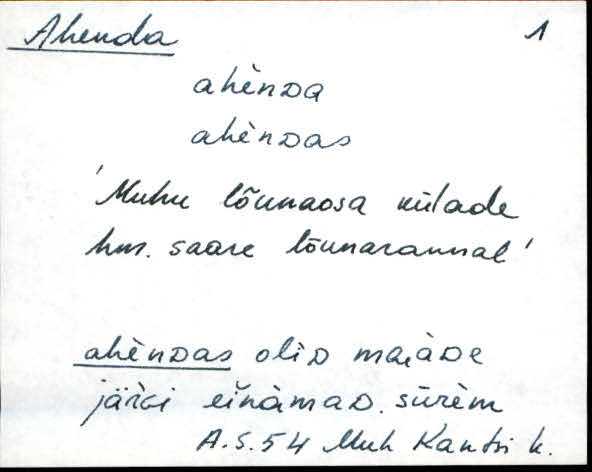 Ahenda 1
ahènᴅa
ahènᴅas
'Muhu lõunaosa külade
hnr. saare lõunarannal'
ahènᴅas oliᴅ
eìnàmaᴅ. sūrèm
A.S. 54 Muh Kantsi k.